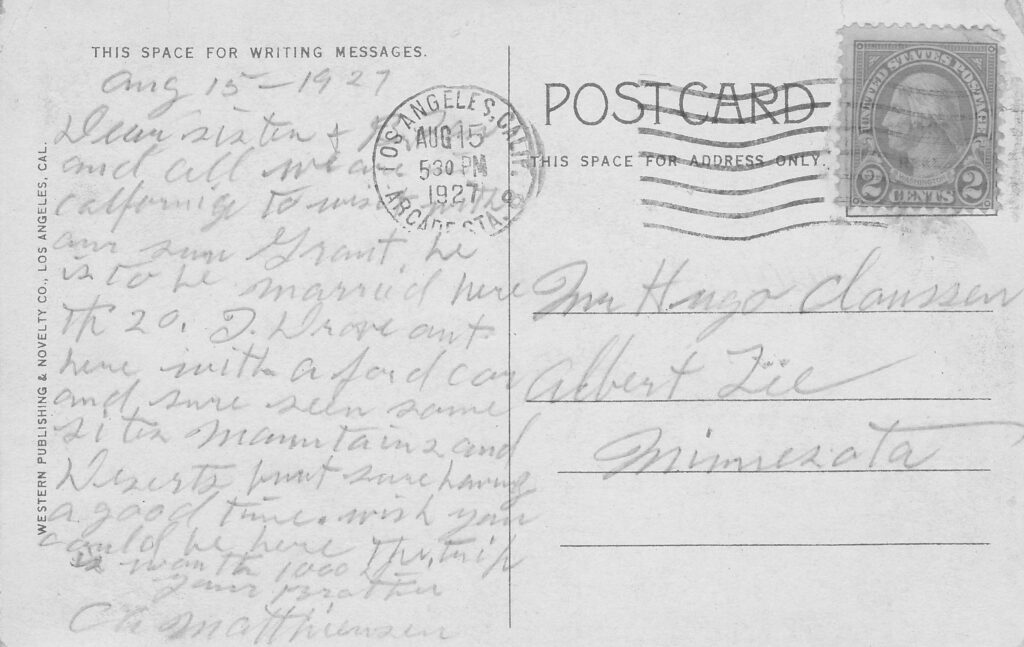 THIS SPACE FOR WRITING MESSAGES.
Aug 15 - 1927
Dear sister &
and all we are
California to visit with
our sun Grant, he
is to be married here
th 20, I. Drove out
here with a ford car
and sure seen some
sites Mauntains and
Deserts but sure having
a good time. wish you
could be here The trip
is worth 1000
your Brother
Ch Matthiensen
WESTERN PUBLISHING & NOVELTY CO., LOS ANGELES, CAL.
LOS ANGELES, CALIF.
AUG 15
530 PM
1927
ARCADE STA.
POSTCARD
THIS SPACE FOR ADDRESS ONLY.
UNITED STATES POSTAGE
2 CENTS 2
Mr Hugo Claussen
Albert Lee
Minnesota